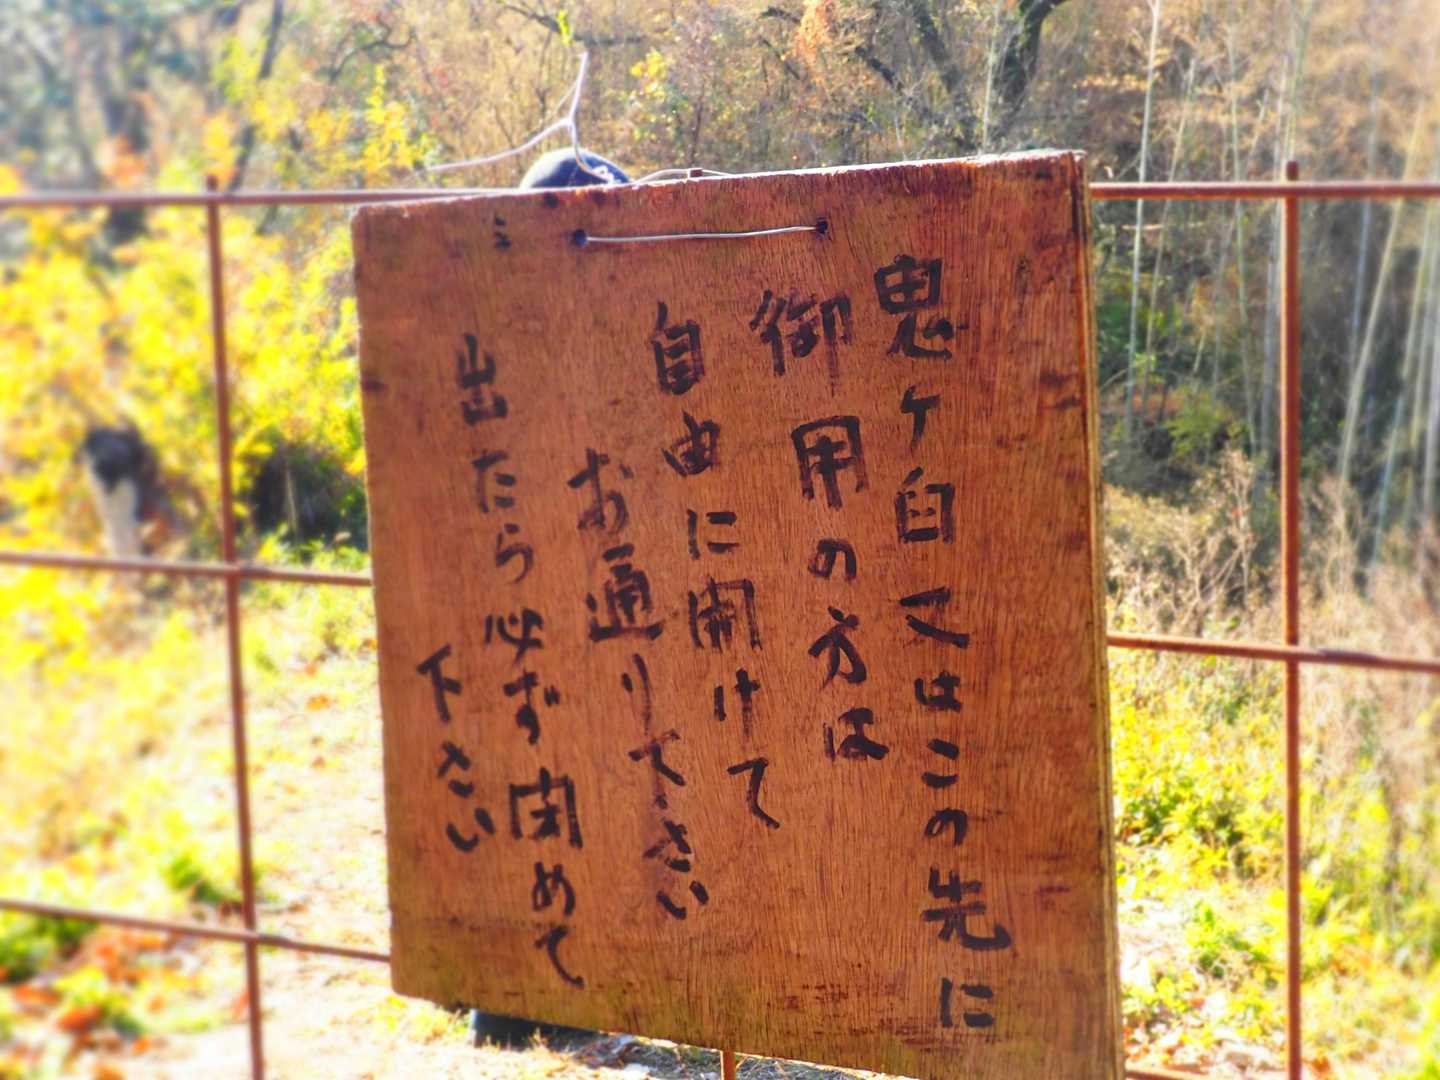 鬼ケ臼又はこの先に
御用の方は
自由に開けて
お通りてさい
出たら必ず閉めて
下さい